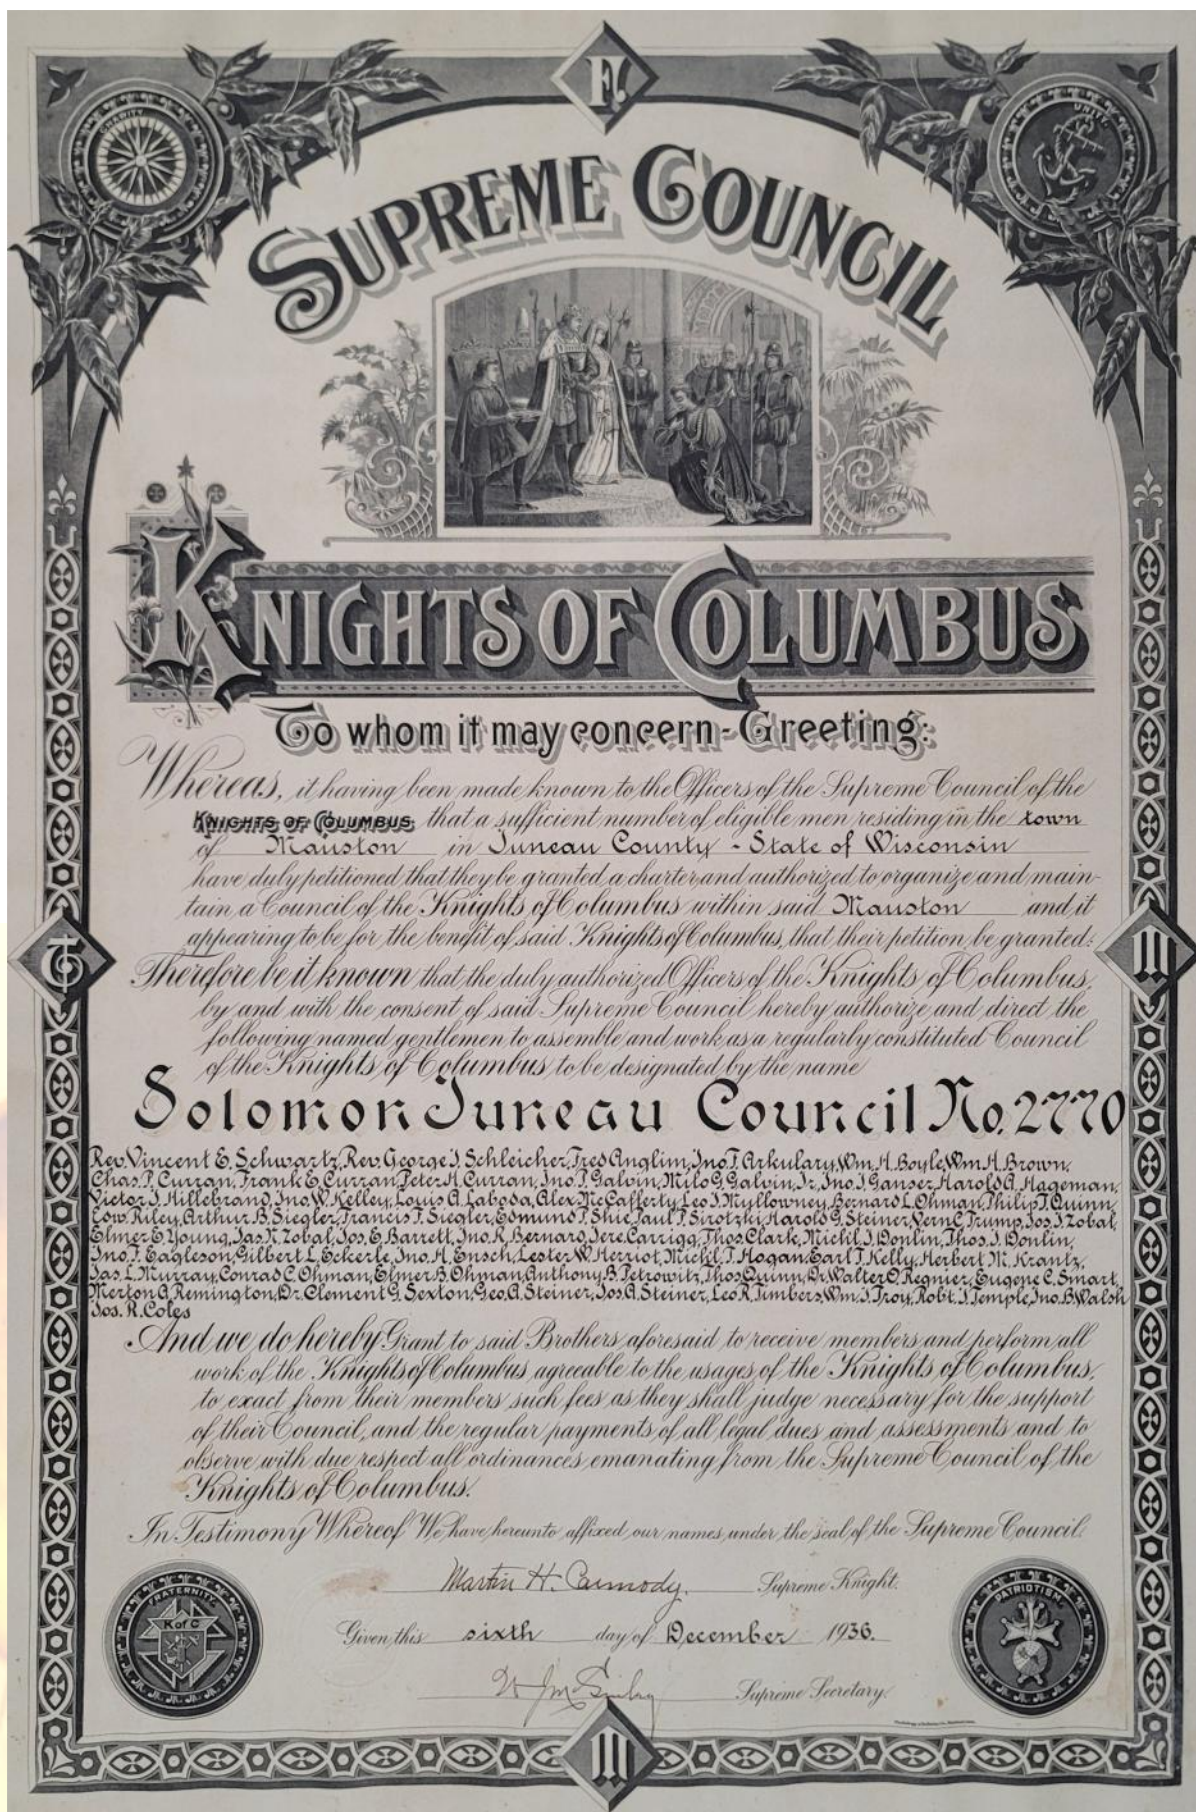 F.
CHARITY
UNITY
SUPREME COUNCIL
KNIGHTS OF COLUMBUS
To whom it may concern - Greeting:
Whereas, it having been made known to the Officers of the Supreme Council of the
KNIGHTS OF COLUMBUS that a sufficient number of eligible men residing in the town
of Mauston in Juneau County - State of Wisconsin
have duly petitioned that they be granted a charter and authorized to organize and main-
tain a Council of the Knights of Columbus within said Mauston and it
appearing to be for the benefit of said Knights of Columbus, that their petition be granted:
Therefore be it known that the duly authorized Officers of the Knights of Columbus,
by and with the consent of said Supreme Council hereby authorize and direct the
following named gentlemen to assemble and work as a regularly constituted Council
of the Knights of Columbus to be designated by the name
Solomon Juneau Council No. 2770
Rev. Vincent E. Schwartz, Rev. George J. Schleicher, Fred Anglim, Jno. T. Arkulary, Wm. H. Boyle, Wm. H. Brown,
Chas. P. Curran, Frank E. Curran, Peter H. Curran, Jno. P. Galvin, Milo G. Galvin, Jr., Jno. J. Ganser, Harold A. Hageman,
Victor J. Hillebrand, Jno. W. Kelley, Louis A. Laboda, Alex McCafferty, Leo J. Myllowney, Bernard L. Ohman, Philip T. Quinn,
Edw. Riley, Arthur B. Siegler, Francis F. Siegler, Edmund P. Shie, Paul P. Sirotzki, Harold G. Steiner, Vern C. Trump, Jos. J. Zobal,
Elmer E. Young, Jas. N. Zobal, Jos. E. Barrett, Jno. R. Bernard, Jere. Carrigg, Thos. Clark, Michl. J. Donlin, Thos. J. Donlin,
Jno. T. Eagleson, Gilbert L. Eckerle, Jno. H. Ensch, Lester W. Herriot, Michl. T. Hogan, Earl T. Kelly, Herbert M. Krantz,
Jas. L. Murray, Conrad C. Ohman, Elmer B. Ohman, Anthony B. Petrowitz, Thos. Quinn, Dr. Walter O. Regnier, Eugene C. Smart,
Merton A. Remington, Dr. Clement G. Sexton, Geo. A. Steiner, Jos. A. Steiner, Leo R. Timbers, Wm. J. Troy, Robt. J. Temple, Jno. B. Walsh
Jos. R. Coles
And we do hereby Grant to said Brothers aforesaid to receive members and perform all
work of the Knights of Columbus agreeable to the usages of the Knights of Columbus,
to exact from their members such fees as they shall judge necessary for the support
of their Council, and the regular payments of all legal dues and assessments and to
observe with due respect all ordinances emanating from the Supreme Council of the
Knights of Columbus.
In Testimony Whereof We have hereunto affixed our names under the seal of the Supreme Council.
Martin H. Carmody. Supreme Knight.
Given this sixth day of December 1936.
Supreme Secretary.
FRATERNITY
K of C
PATRIOTISM